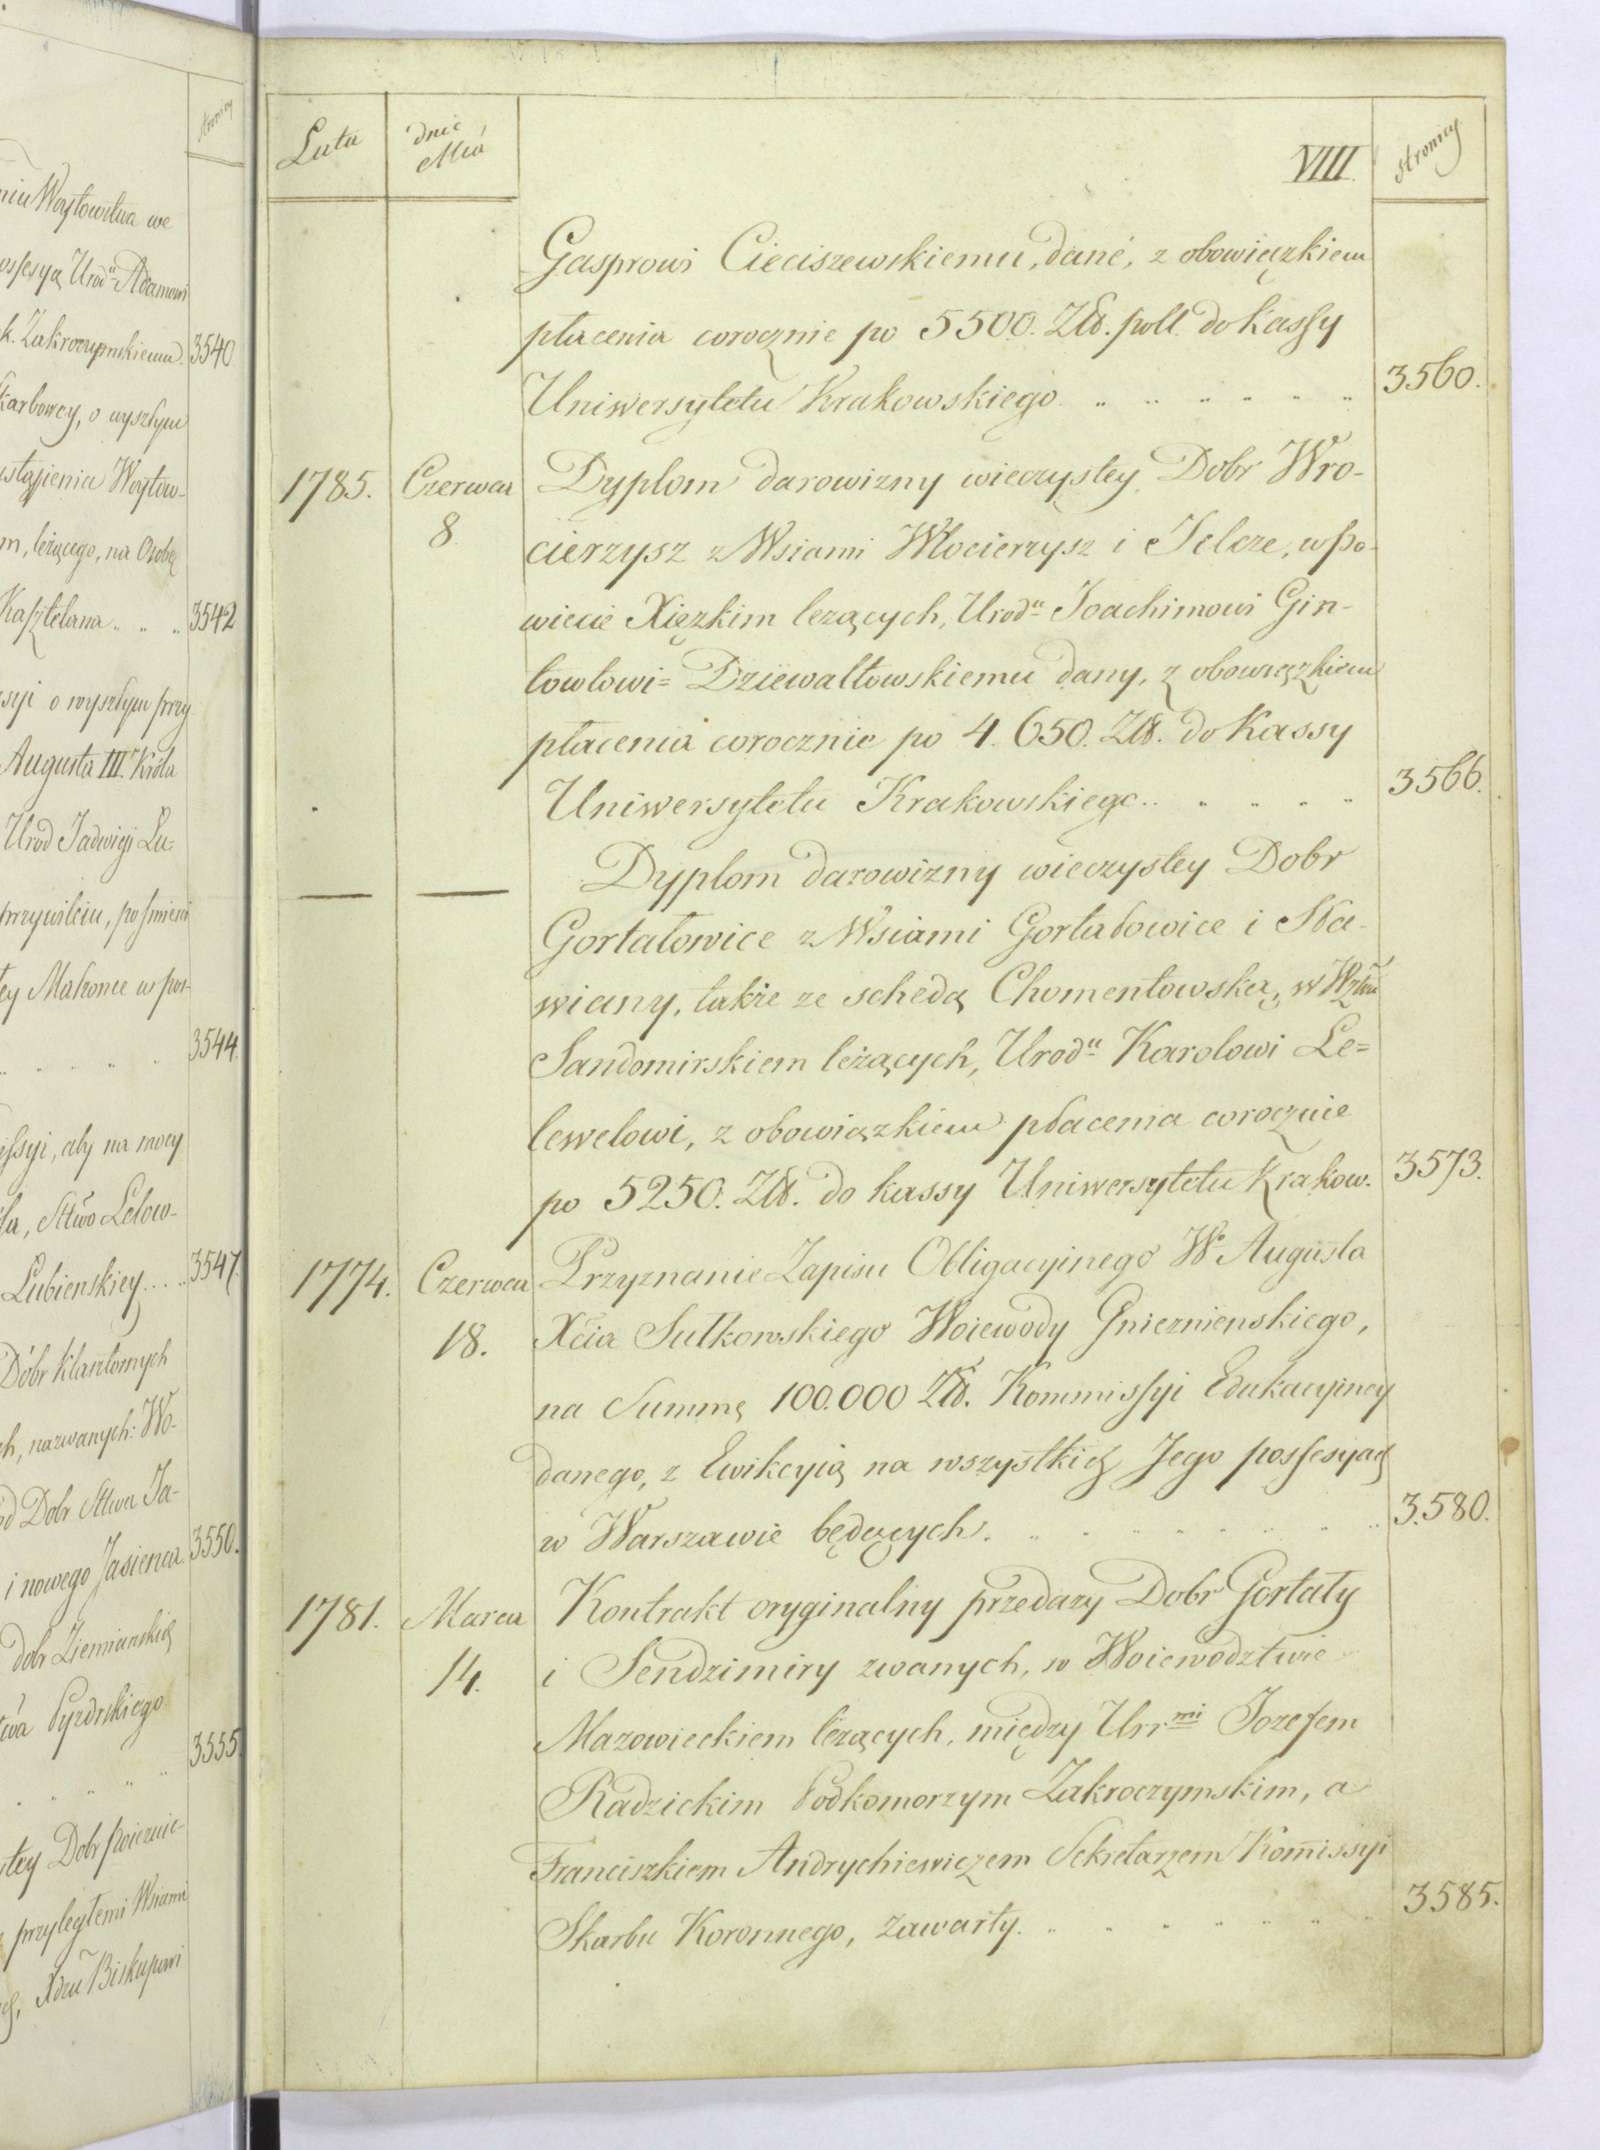 stronicy
niu Woytowstwa we
ossesyą Urod. Adamowi
k. Zakroczymskiemu. 3540
Karbowey, o wyszłym
ustąpieniu Woytow-
m, leżącego, na Osobę
Kasztelana .. .. .. 3542
syi o wyszłym przy
Augusta III. Króla
Urod Jadwigi Łu-
przywileiu, po śmierci
ey Małżonce w pos-
.. .. .. .. 3544.
issyi, aby na mocy
ła, Sttwo Lelow-
Łubienskiey .. .. 3547.
Dóbr klasztornych
ch, nazwanych: Wo-
d Dobr Sttwa Ja-
i nowego Jasienca 3550.
dobr Ziemianskich
twa Pyzdrskiego
.. .. .. .. 3555.
stey Dobr poiezuic-
przyległemi Wsiami
Xdzu Biskupowi
Lata dnie Mca VIII. stronicy
Gasprowi Cieciszewskiemu, dané, z obowiązkiem
płacenia corocznie po 5500. Zł. poll. do Kassy
Uniwersytetu Krakowskiego .. .. .. .. .. .. 3560.
1785. Czerwca Dyplom darowizny wieczystey Dobr Wro-
8 cierzysz z Wsiami Włocierzysz i Jelcze, w Po-
wiecie Xięzkim leżących, Urodu Joachimowi Gin-
towtowi= Dziewałtowskiemu dany, z obowiązkiem
płacenia corocznie po 4.650. Zł. do Kassy
Uniwersytetu Krakowskiego .. .. .. .. .. 3566.
— — Dyplom darowizny wieczystey Dobr
Gortatowice z Wsiami Gortatowice i Sła-
wiany, także ze schedą Chomentowską, w Wztwie
Sandomirskiem leżących, Urodu Karolowi Le=
lewelowi, z obowiązkiem płacenia corocznie
po 5250. Zł. do kassy Uniwersytetu Krakow. 3573.
1774. Czerwca Przyznanie Zapisu Obligacyinego Wo Augusta
18. Xcia Sułkowskiego Woiewody Gnieznienskiego,
na Summę 100.000 Zł. Kommissyi Edukacyiney
danego, z Ewikcyią na wszystkich Jego possesyach
w Warszawie będących. .. .. .. .. .. .. .. 3.580.
1781. Marca Kontrakt oryginalny przedazy Dobr Gortaty
14. i Sendzimiry zwanych, w Woiewodztwie
Mazowieckiem leżących, między Urrmi Jozefem
Radzickim Podkomorzym Zakroczymskim, a
Franciszkiem Andrychiewiczem Sekretarzem Komissyi
Skarbu Koronnego, zawarty. .. .. .. .. .. .. 3585.